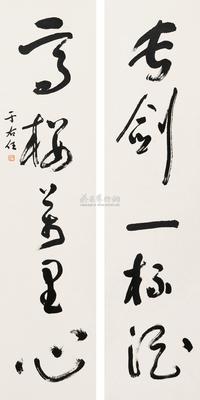 长剑一杯酒
高楼万里心
于右任